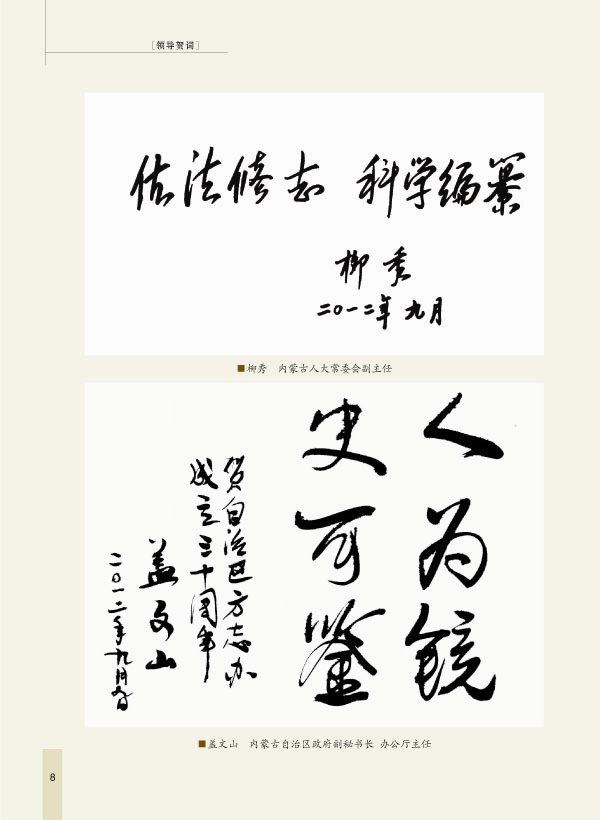 [领导贺词]
依法修志 科学编纂
柳秀
二〇一二年九月
■柳秀 内蒙古人大常委会副主任
人为镜
史可鉴
贺自治区方志办
成立三十周年
盖文山
二〇一二年九月
■盖文山 内蒙古自治区政府副秘书长 办公厅主任
8